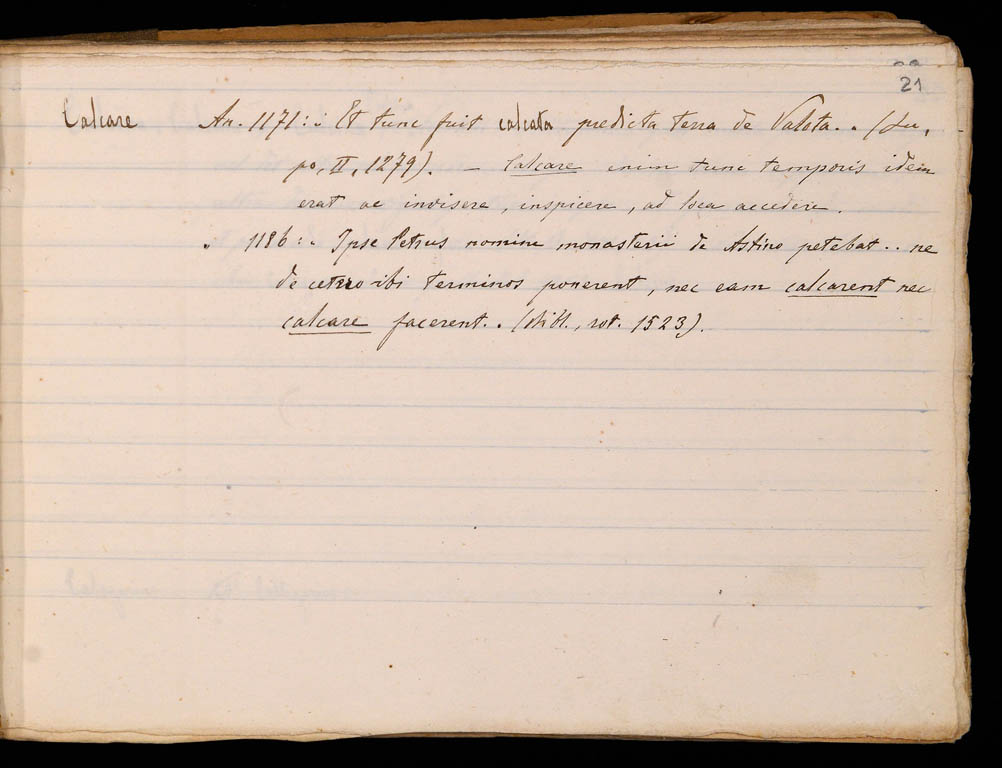 21
Calcare An. 1171: . Et tunc fuit calcata predicta terra de Valota . . (Lu,
po, II, 1279). — Calcare enim tunc temporis idem
erat ac invisere, inspicere, ad loca accedere.
„ 1186: . Ipse Petrus nomine monasterii de Astino petebat . . ne
de cetero ibi terminos ponerent, nec eam calcarent nec
calcare facerent. . (Bibl., rot. 1523).